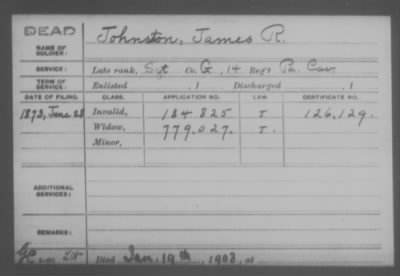 DEAD
NAME OF SOLDIER: Johnston, James R.
SERVICE: Late rank, Sgt Co. G, 14 Reg't Pa. Cav.
TERM OF SERVICE: Enlisted , 1 Discharged , 1
DATE OF FILING. CLASS. APPLICATION NO. LAW CERTIFICATE NO.
1873, June 28 Invalid, 184 825 T 126,129.
Widow, 779.027. T.
Minor,
ADDITIONAL SERVICES:
REMARKS:
Died Jan. 19th, 1903, at